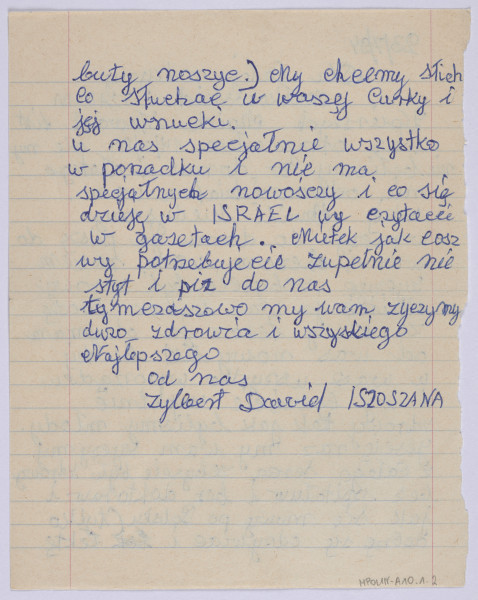 buty noszyc.) My chcemy slich
co słuchac u waszej Curky i
jej wnucki.
u nas specjałnie wszystko
w porzadku i nie ma
specjałnych nowośczy i co się
dzieję w ISRAEL wy czytacie
w gazetach. Mietek jak cosz
wy potrzebujecie zupełnie nie
styt i pisz do nas
tymczaszowo my wam życzymy
duzo zdrowia i wszyskiego
Najlepszego
od nas
Zylbert Dawid ISZOSZANA
MPOLIN-A10.1.2